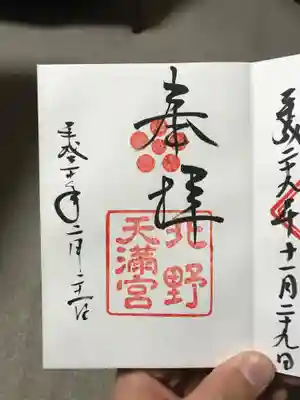 平成二十九年十一月二十九日
奉拝
北野
天満宮
平成三十年二月二十一日